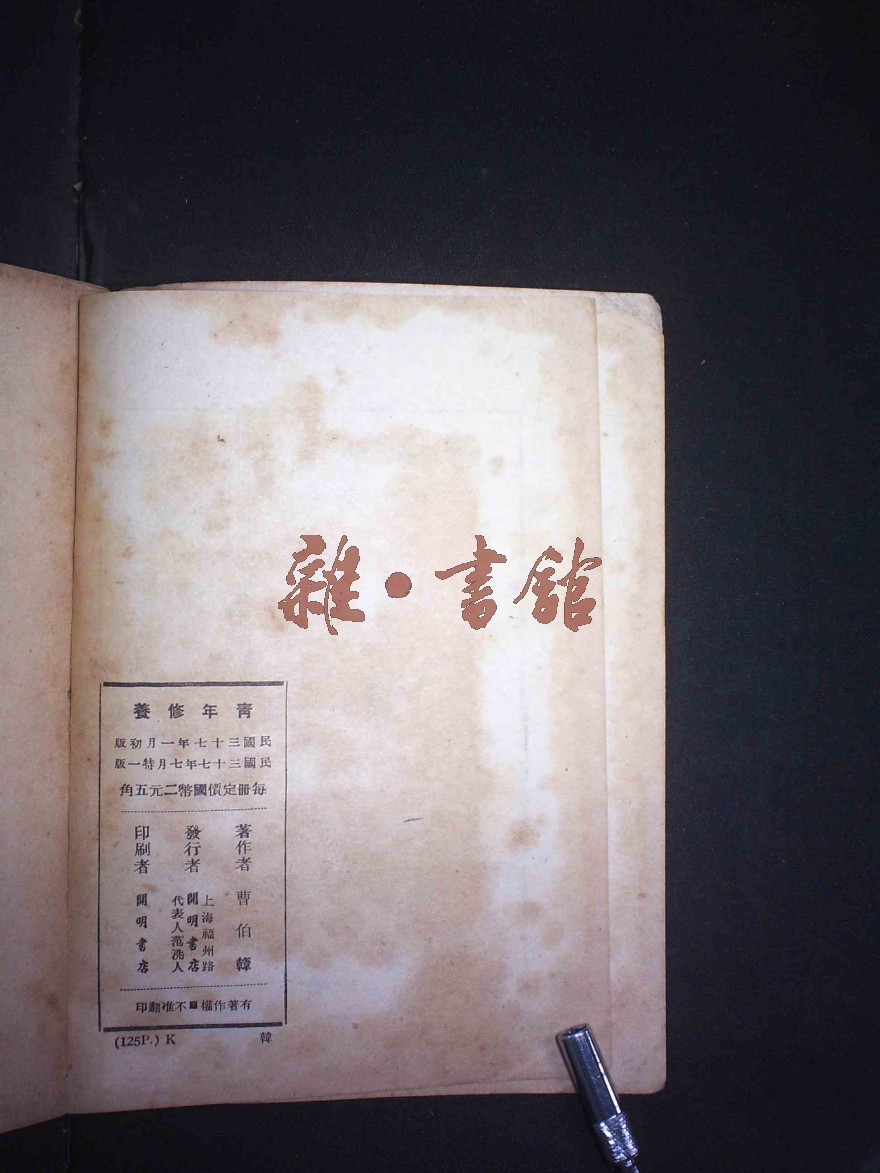 雜·書館
青年修養
民國三十七年一月初版
民國三十七年七月特一版
每冊定價國幣二元五角
著作者 曹伯韓
發行者 上海福州路
開明書店
代表人范洗人
印刷者 開明書店
有著作權■不准翻印
(125P.) K
韓